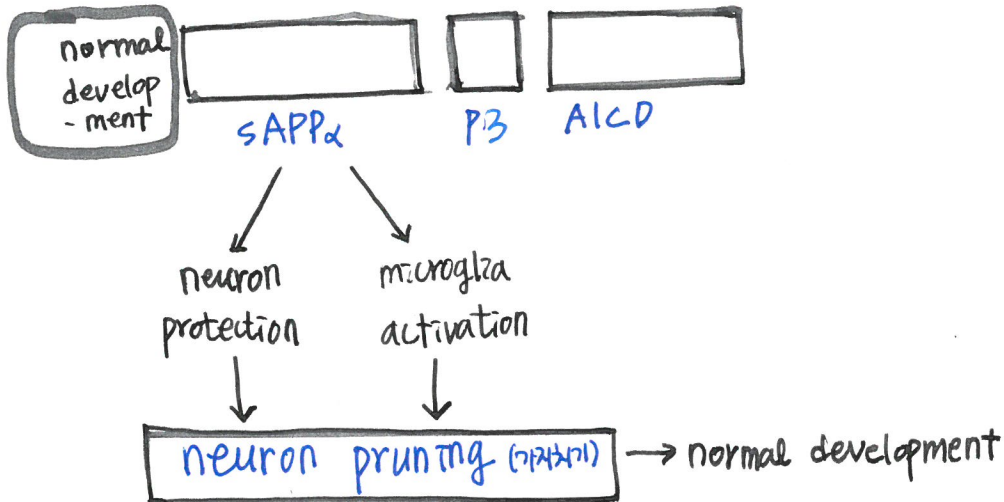 normal
develop
- ment
sAPPα
P3
AICD
neuron
protection
microglia
activation
neuron pruning (가지치기)
normal development